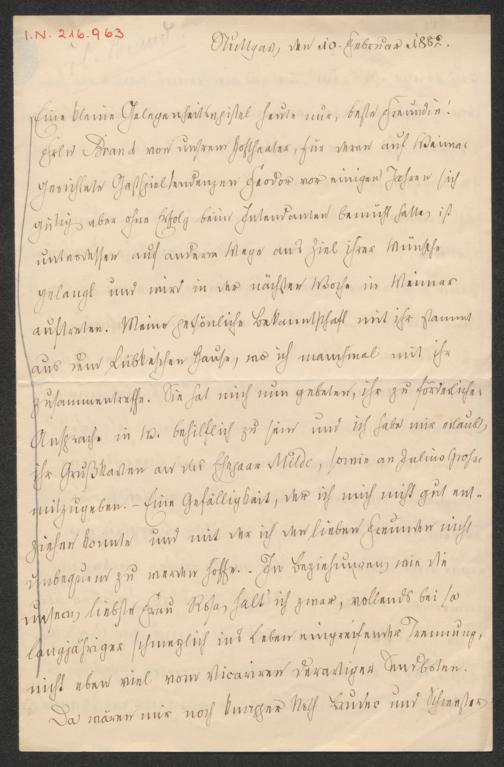 I.N. 216.963
Stuttgart, den 10. Februar 1882.
Eine kleine Gelegenheitsepistel heute nur, beste Freundin!
Frln Brand von unsrem Hoftheater, für deren auf Weimar
gerichtete Gastspieltendenzen Feodor vor einigen Jahren sich
gütig aber ohne Erfolg beim Intendanten bemüht hatte, ist
unterdessen auf anderm Wege ans Ziel ihrer Wünsche
gelangt und wird in der nächsten Woche in Weimar
auftreten. Meine persönliche Bekanntschaft mit ihr stammt
aus dem Lübke'schen Hause, wo ich manchmal mit ihr
zusammentreffe. Sie hat mich nun gebeten, ihr zu förderlicher
Ansprache in W. behilflich zu sein und ich habe mir erlaubt,
ihr Grußkarten an das Ehepaar Milde, sowie an
mitzugeben. – Eine Gefälligkeit, der ich mich nicht gut ent-
ziehen konnte und mit der ich den lieben Freunden nicht
unbequem zu werden hoffe. – In Beziehungen, wie die
unsern, liebste Frau Rosa, halt' ich zwar, vollends bei so
langjähriger schmerzlich ins Leben eingreifender Trennung,
nicht eben viel vom Vicariren derartiger Sendboten.
Da wären mir noch Bruder und Schwester